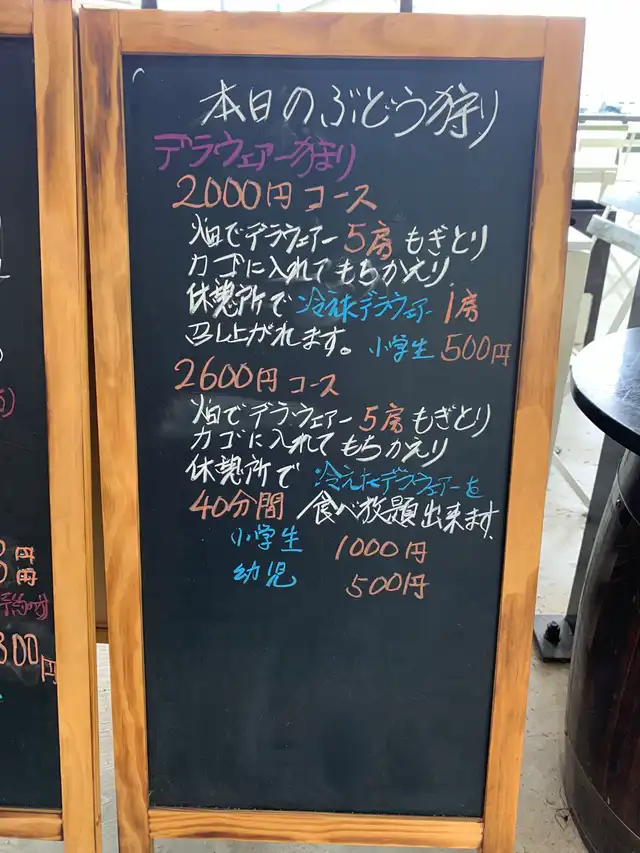 本日のぶどう狩り
デラウェアー狩り
2000円コース
畑でデラウェアー5房もぎとり
カゴに入れてもちかえり
休憩所で冷えたデラウェアー1房
召し上がれます。小学生500円
2600円コース
畑でデラウェアー5房もぎとり
カゴに入れてもちかえり
休憩所で冷えたデラウェアーを
40分間食べ放題出来ます
小学生 1000円
幼児 500円
円
円
300円